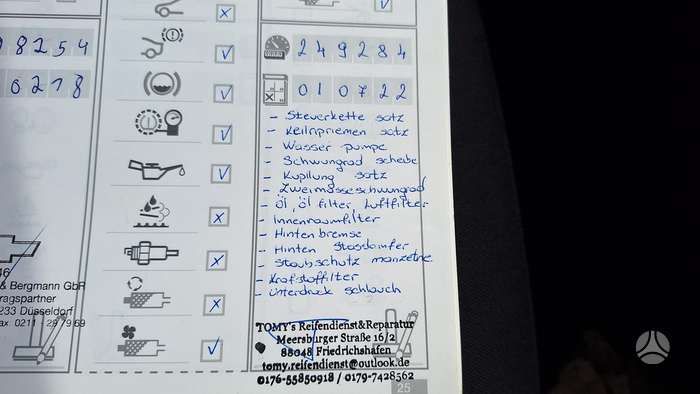 98254
249284
10218
010722
- Steuerkette satz
- Keilripriemen satz
- Wasser pumpe
- Schwungrad scheibe
- Kuplung satz
- Zweimasseschwungrad
- Öl, Öl filter, Luftfilter
- Innenraumfilter
- Hintenbremse
- Hinten Stosdämfer
- Staubschutz manzetne
- Krafstoffilter
- Unterdruck schlauch
46
& Bergmann GbR
ragspartner
233 Düsseldorf
ax. 0211 - 29 79 69
TOMY's Reifendienst&Reparatur
Meersburger Straße 16/2
88048 Friedrichshafen
tomy.reifendienst@outlook.de
0176-55850918 / 0179-7428562
25